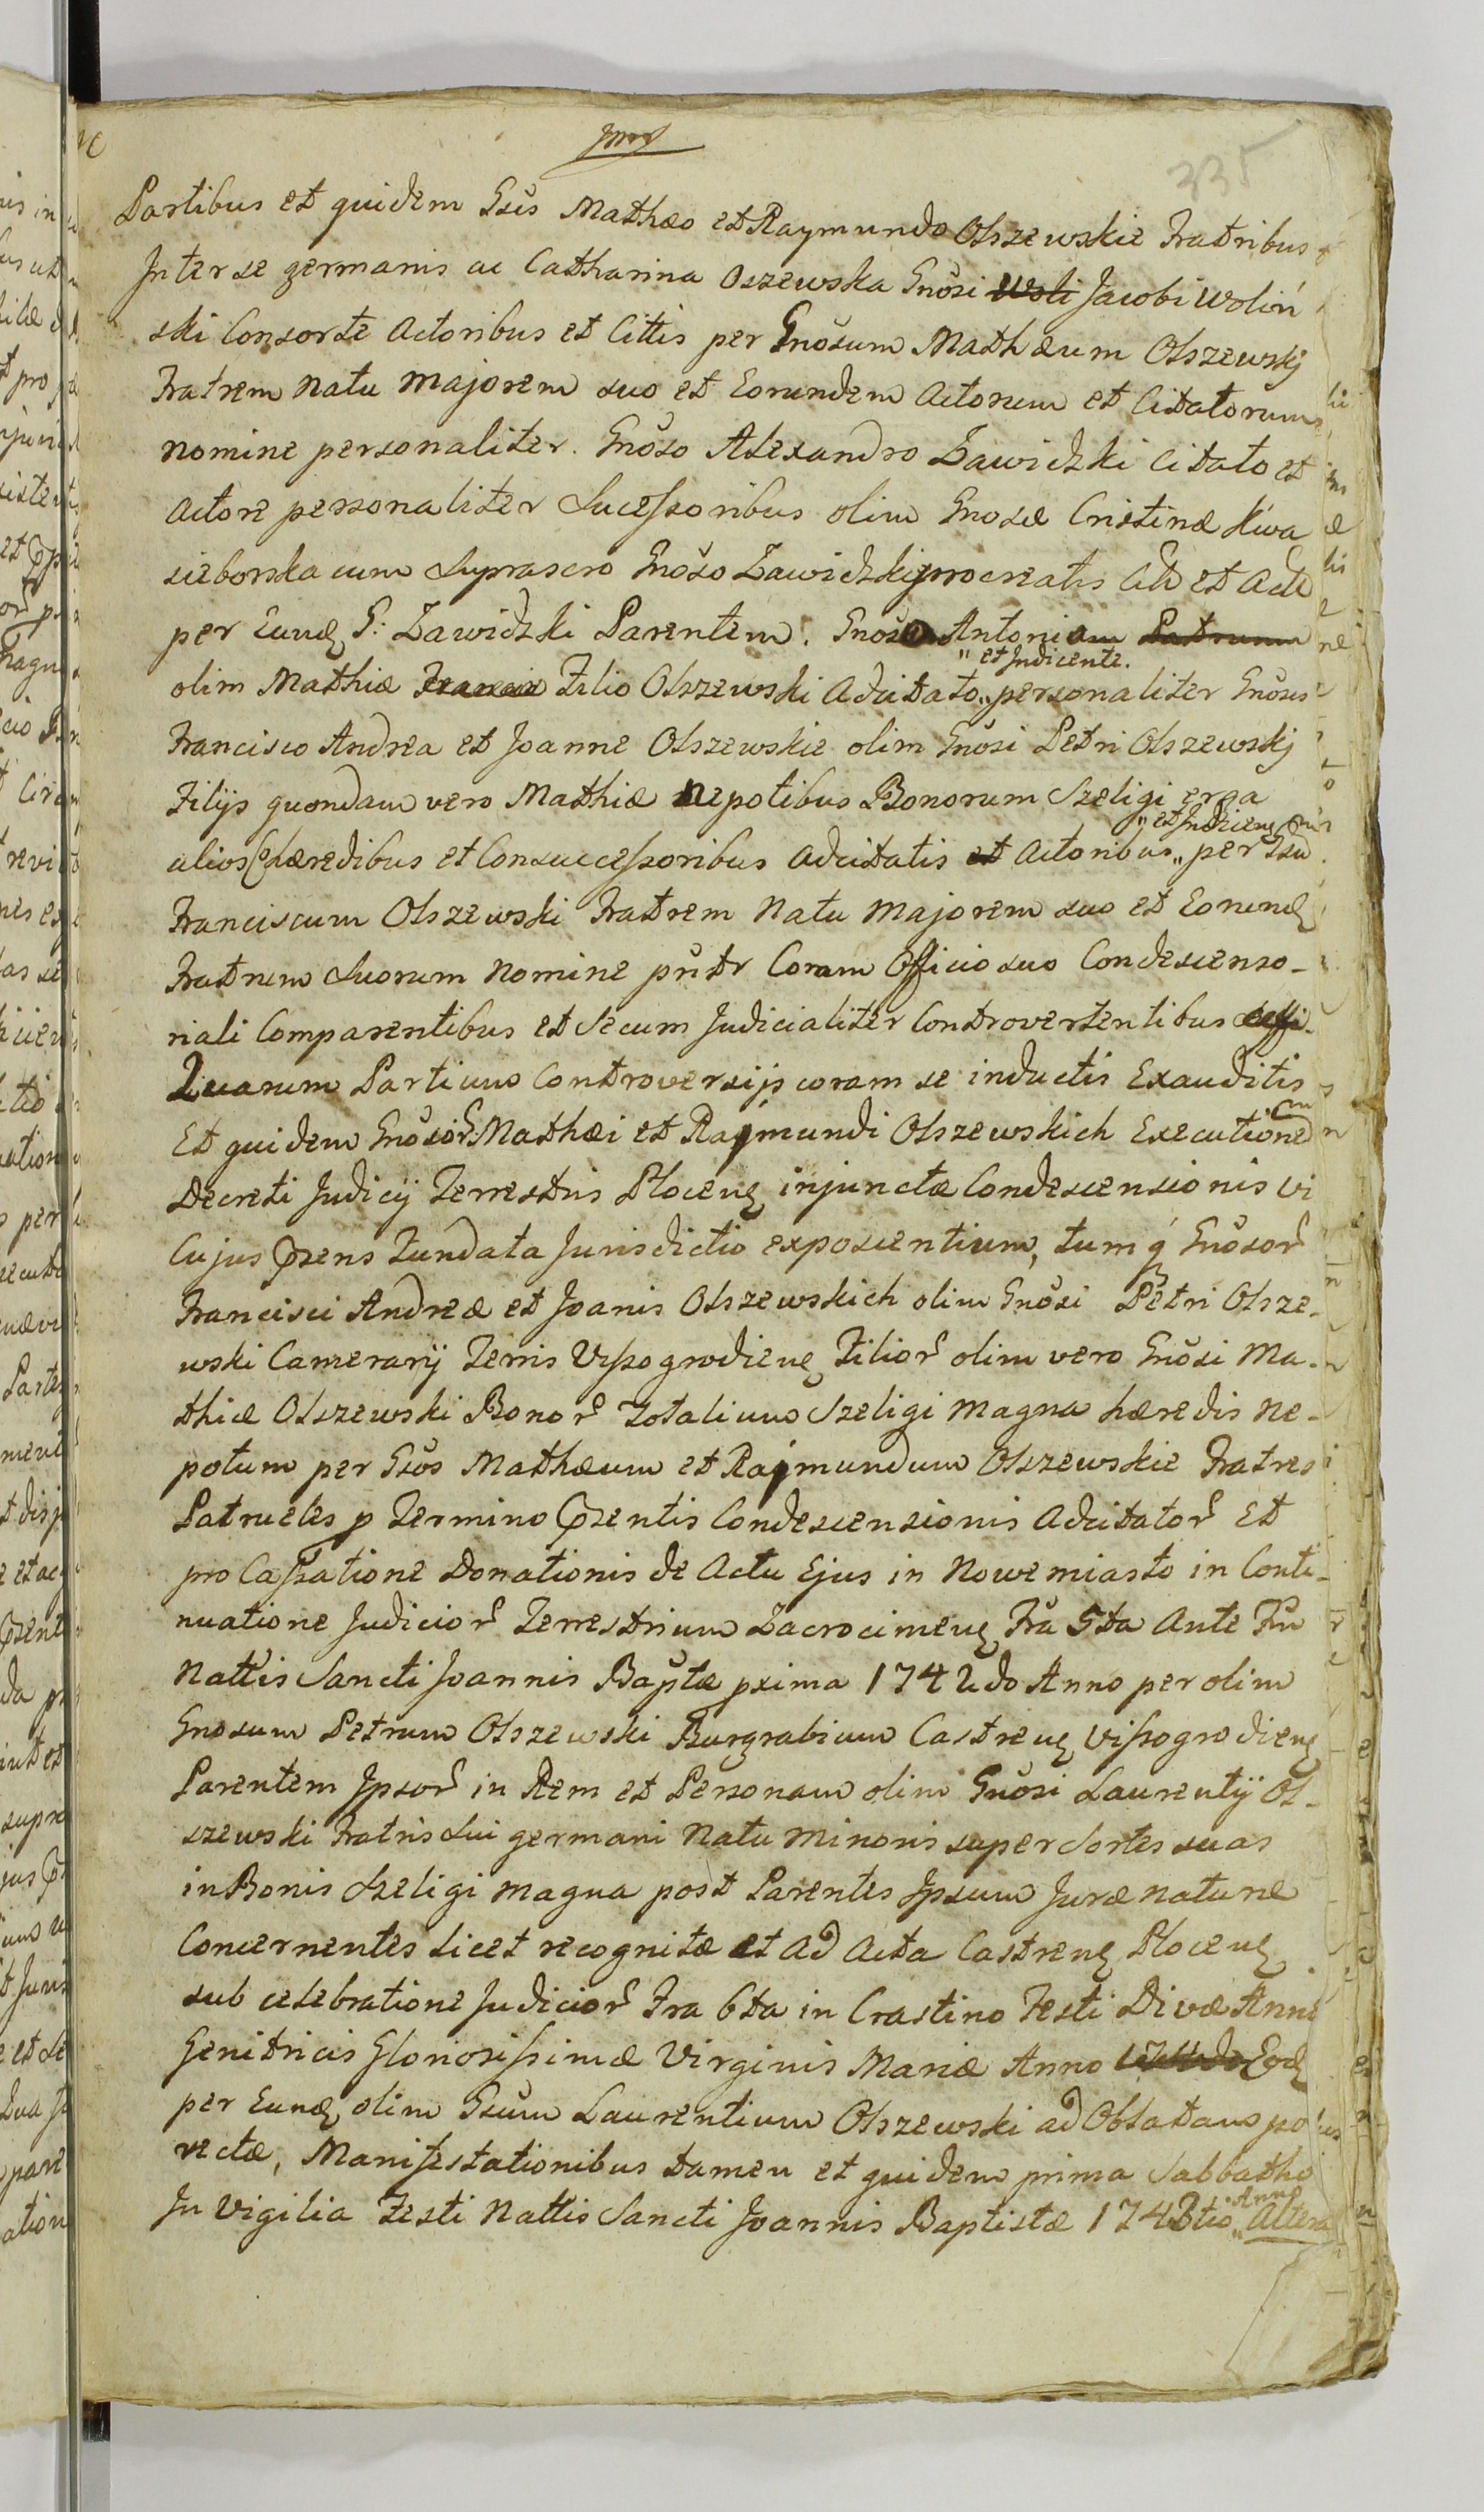 335
Partibus et quidem Gsis Mathæo et Raymundo Olszewskie Fratribus
Inter se germanis ac Catharina Oszewska Gnosi Woli Jacobi Woliń
ski Consorte Actoribus et Cittis per Gnosum Mathæum Olszewskj
Fratrem Natu Majorem suo et Eorundem Actorum et Citatorum
nomine personaliter. Gnoso Alexandro Zawidzki Citato et
Actore personaliter Sucessoribus olim Gnosæ Cristinæ Kwa
sieborska cum Suprascro Gnoso Zawidzki procreatis Citt et Act
per Eund G: Zawidzki Parentem. Gnoso Antoniam Patruum
" et Judicente.
olim Mathiæ Francis Filio Olszewski Adcitato " personaliter Gnosis
Francisco Andrea et Joanne Olszewskie olim Gnosi Petri Olszewskj
Filijs quondam vero Mathiæ Nepotibus Bonorum Szeligi erga
alios Cohæredibus et Consuccessoribus Adcitatis et Actoribus " per Gsu
Franciscum Olszewski Fratrem Natu Majorem suo et Eorund
Fratrum Suorum Nomine pntr Coram Officio suo Condescenso-
riali Comparentibus et Secum Judicialiter Controvertentibus
Quarum Partium Controversijs coram se inductis Exauditis
Et quidem Gnosior Mathæi et Raymundi Olszewskich Executione
Decreti Judicij Terrestris Plocen injunctæ Condescensionis vi
Cujus præsens Fundata Jurisdictio exposcentium, tum q Gnosor
Francisci Andreæ et Joanis Olszewskich olim Gnosi Petri Olsze-
wski Camerarij Terris Vissogrodien Filior olim vero Gnosi Ma-
thiæ Olszewski Bonor Totalium Szeligi Magna hæredis Ne-
potum per Gsos Mathæum et Raymundum Olszewskie Fratres
Patrueles p Termino præsentis Condescensionis Adcitator Et
pro Cassatione Donationis de Actu Ejus in Nowemiasto in Conti-
nuatione Judicior Terrestrium Zacrocimen Fra 5ta Ante Fu
Nattis Sancti Joannis Baptæ pxima 1742do Anno per olim
Gnosum Petrum Olszewski Burgrabium Castren Vissogrodien
Parentem Ipsor in Rem et Personam olim Gnosi Laurentij Ol-
szewski Fratris Sui germani Natu Minoris super Sortes suas
in Bonis Szeligi Magna post Parentes Ipsum Juræ naturæ
Concernentes licet recognitæ et Ad Acta Castren Plocen
sub celebratione Judicior Fra 6ta in Crastino Festi Divæ Anni
Genitricis Gloriosissimæ Virginis Mariæ Anno Eod
per Eund olim Gsum Laurentium Olszewski ad Oblatam po
rectæ, Manifestationibus tamen et quidem prima Sabbatho
Anno
In Vigilia Festi Nattis Sancti Joannis Baptistæ 1743tio " Altera